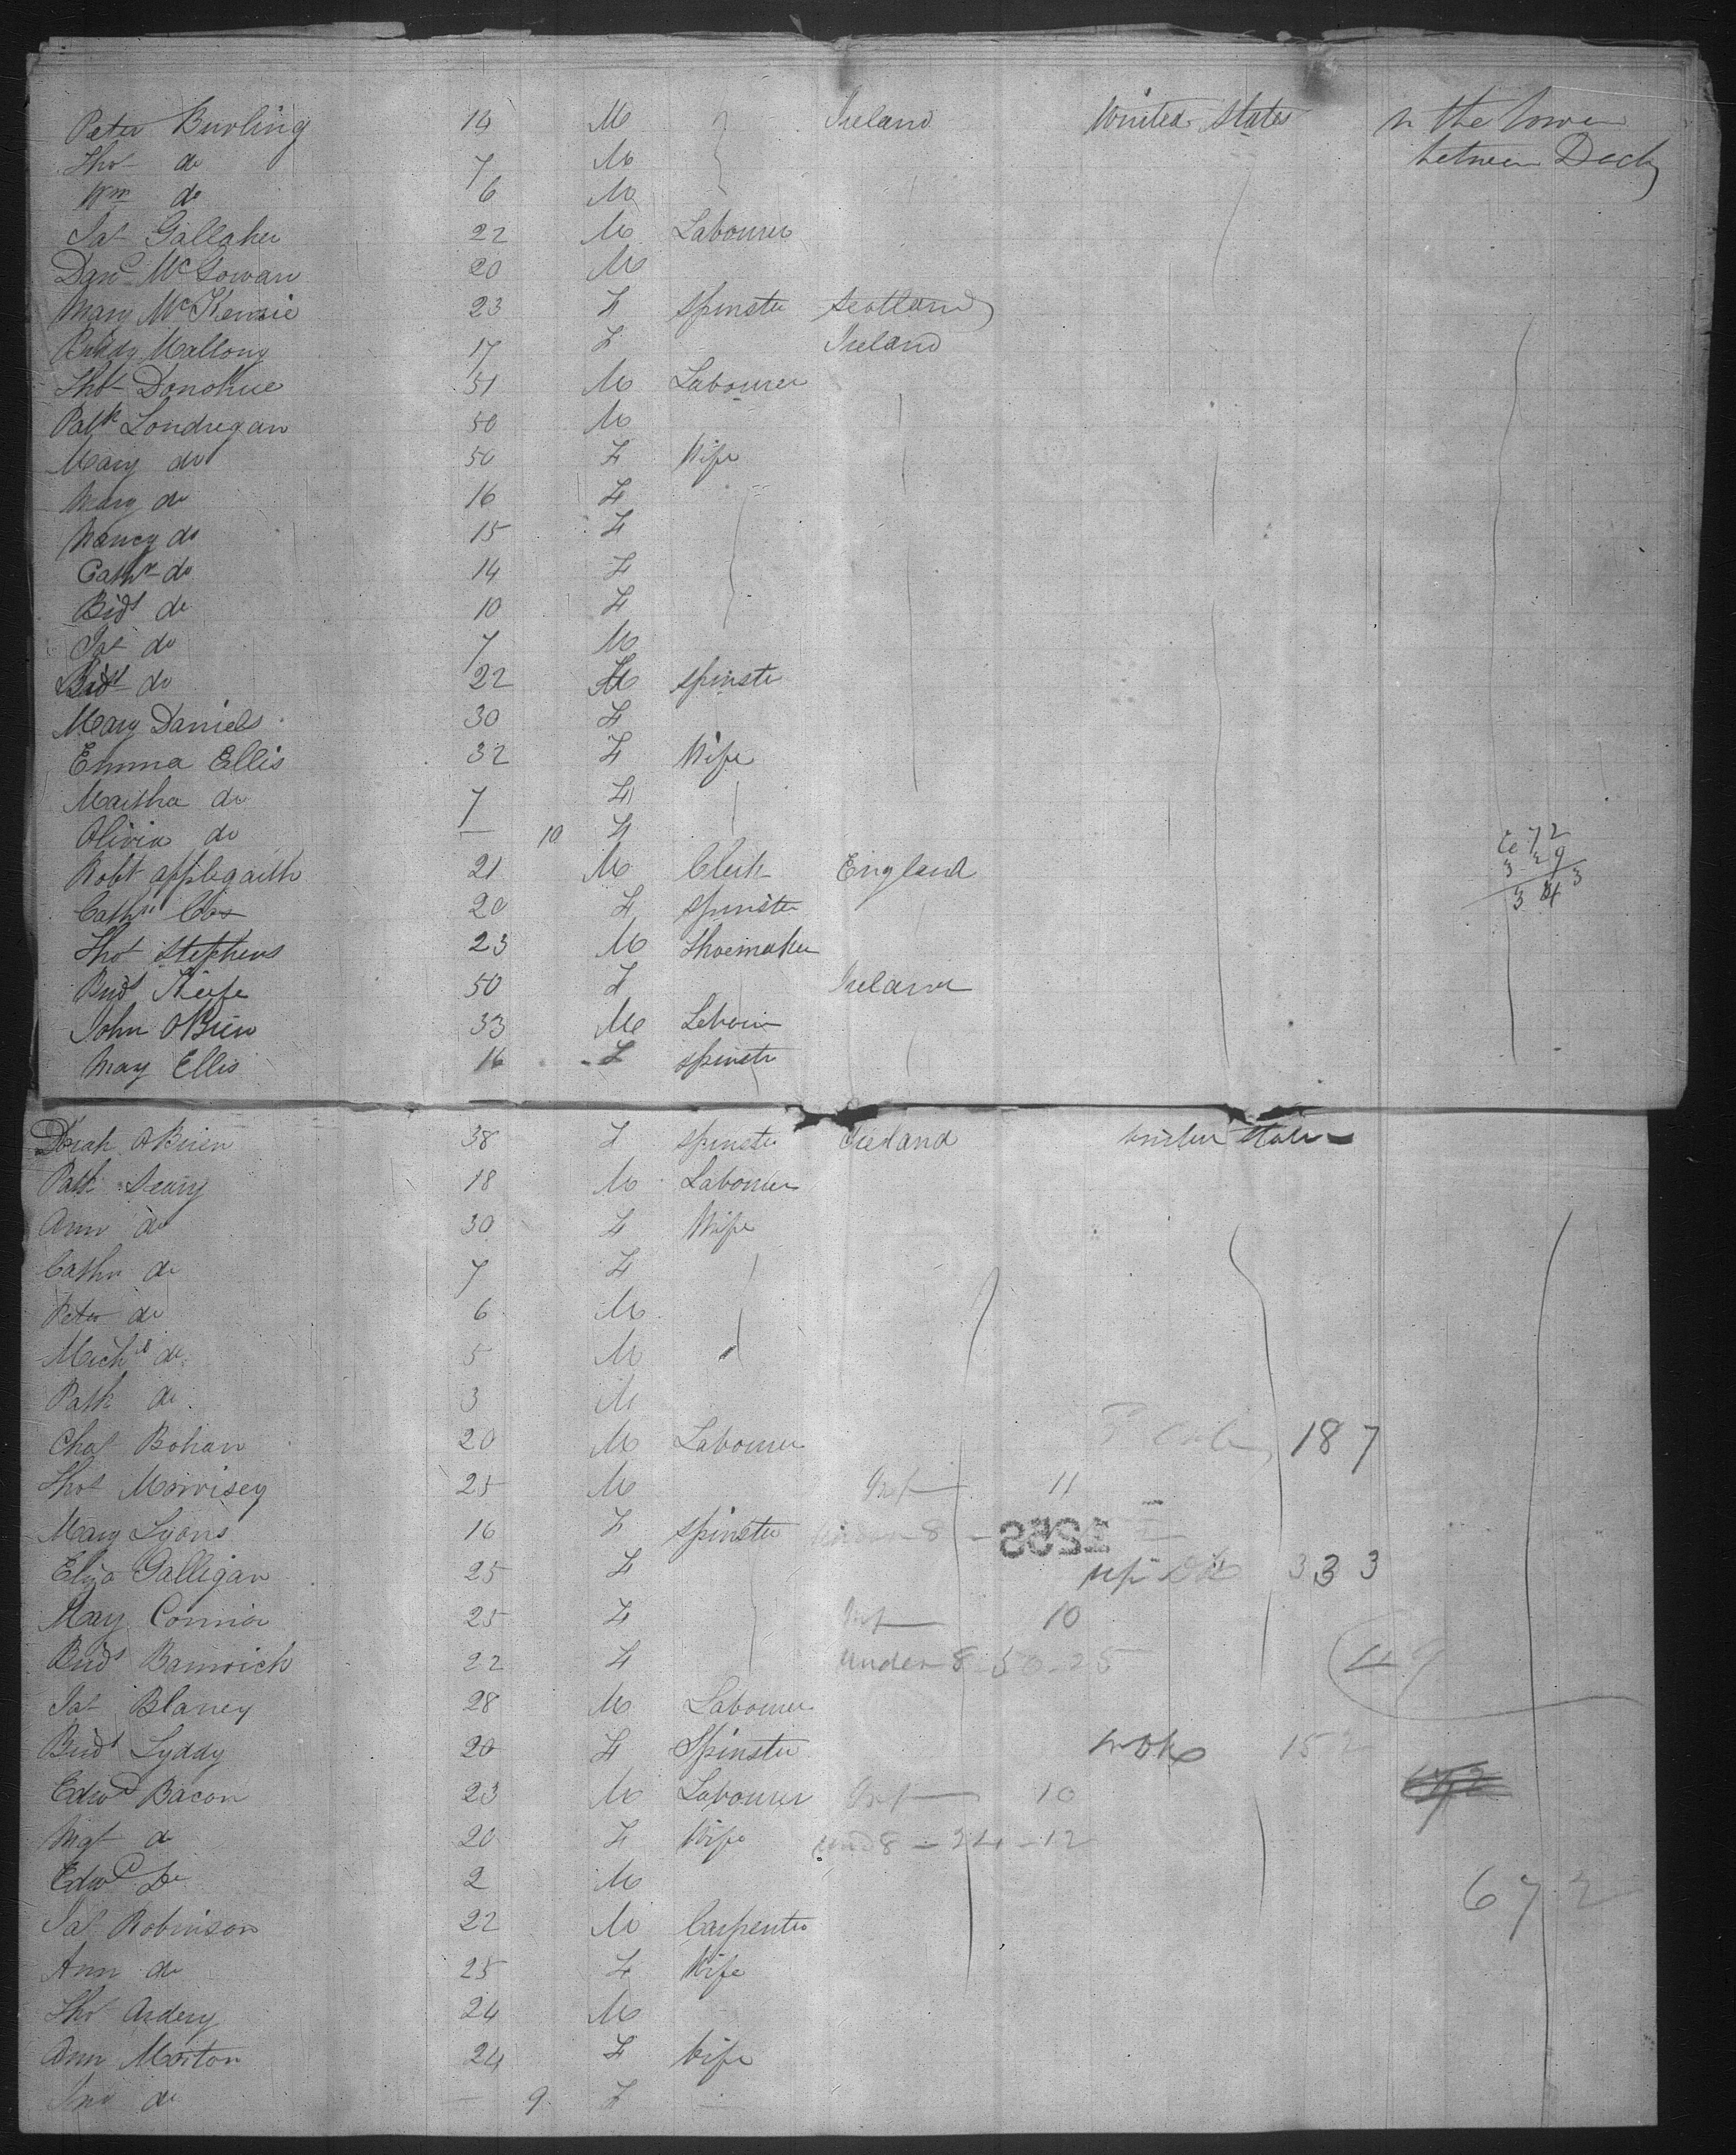 Peter Burling 14 M Ireland United States In the lower
Thos do 7 M between Decks
Wm do 6 M
Jas Gallaher 22 M Labourer
Danl McGowan 20 M
Mary McKenzie 23 F Spinster Scotland
Biddy Mallony 17 F Ireland
Thos Donohue 51 M Labourer
Patk Londregan 50 M
Mary do 50 F Wife
Mary do 16 F
Nancy do 15 F
Cathe do 14 F
Bidt do 10 F
Jas do 7 M
Bidt do 22 F Spinster
Mary Daniels 30 F
Emma Ellis 32 F Wife
Martha do 7 F
Olivia do — 10 F
Robt Applegaith 21 M Clerk England
Cathn Cox 20 F Spinster
Thos Stephens 23 M Shoemaker
Bridt Keefe 50 F Ireland
John OBrien 33 M Labour
Mary Ellis 16 F Spinstr
OBrien 38 F Spinster Ireland United States
Patk 18 M Labourer
Ann do 30 F Wife
Cathn do 7 F
Peter do 6 M
Michl do 5 M
Patk do 3 M
Chas Bohan 20 M Labourer 187
Thos Morrisey 25 M Inf — 11
Mary Lyons 16 F Spinster under 8
Eliza Galligan 25 F 333
Mary Connior 25 F Inf — 10
Bridt Banwick 22 F under 8 50-25 49
Jas Blaney 28 M Labourer
Bridt Lyddy 20 F Spinster 152
Edwd Bacon 23 M Labourer Inf — 10
Mgt do 20 F Wife und 8 — 24 — 12
Edwd Do 2 M 672
Jas Robinson 22 M Carpenter
Ann do 25 F Wife
Thos Ardery 24 M
Ann Morton 24 F Wife
do — 9 F